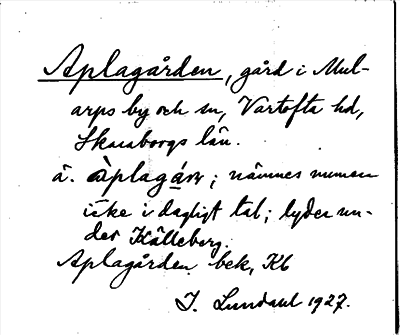 Aplagården, gård i Mul-
arps by och sn, Vartofta hd,
Skaraborgs län.
ä. àplagáṛṇ; nämnes numera
icke i dagligt tal; lyder un-
der Källeberg.
Aplagården bek, Kb
J. Lundahl 1927.